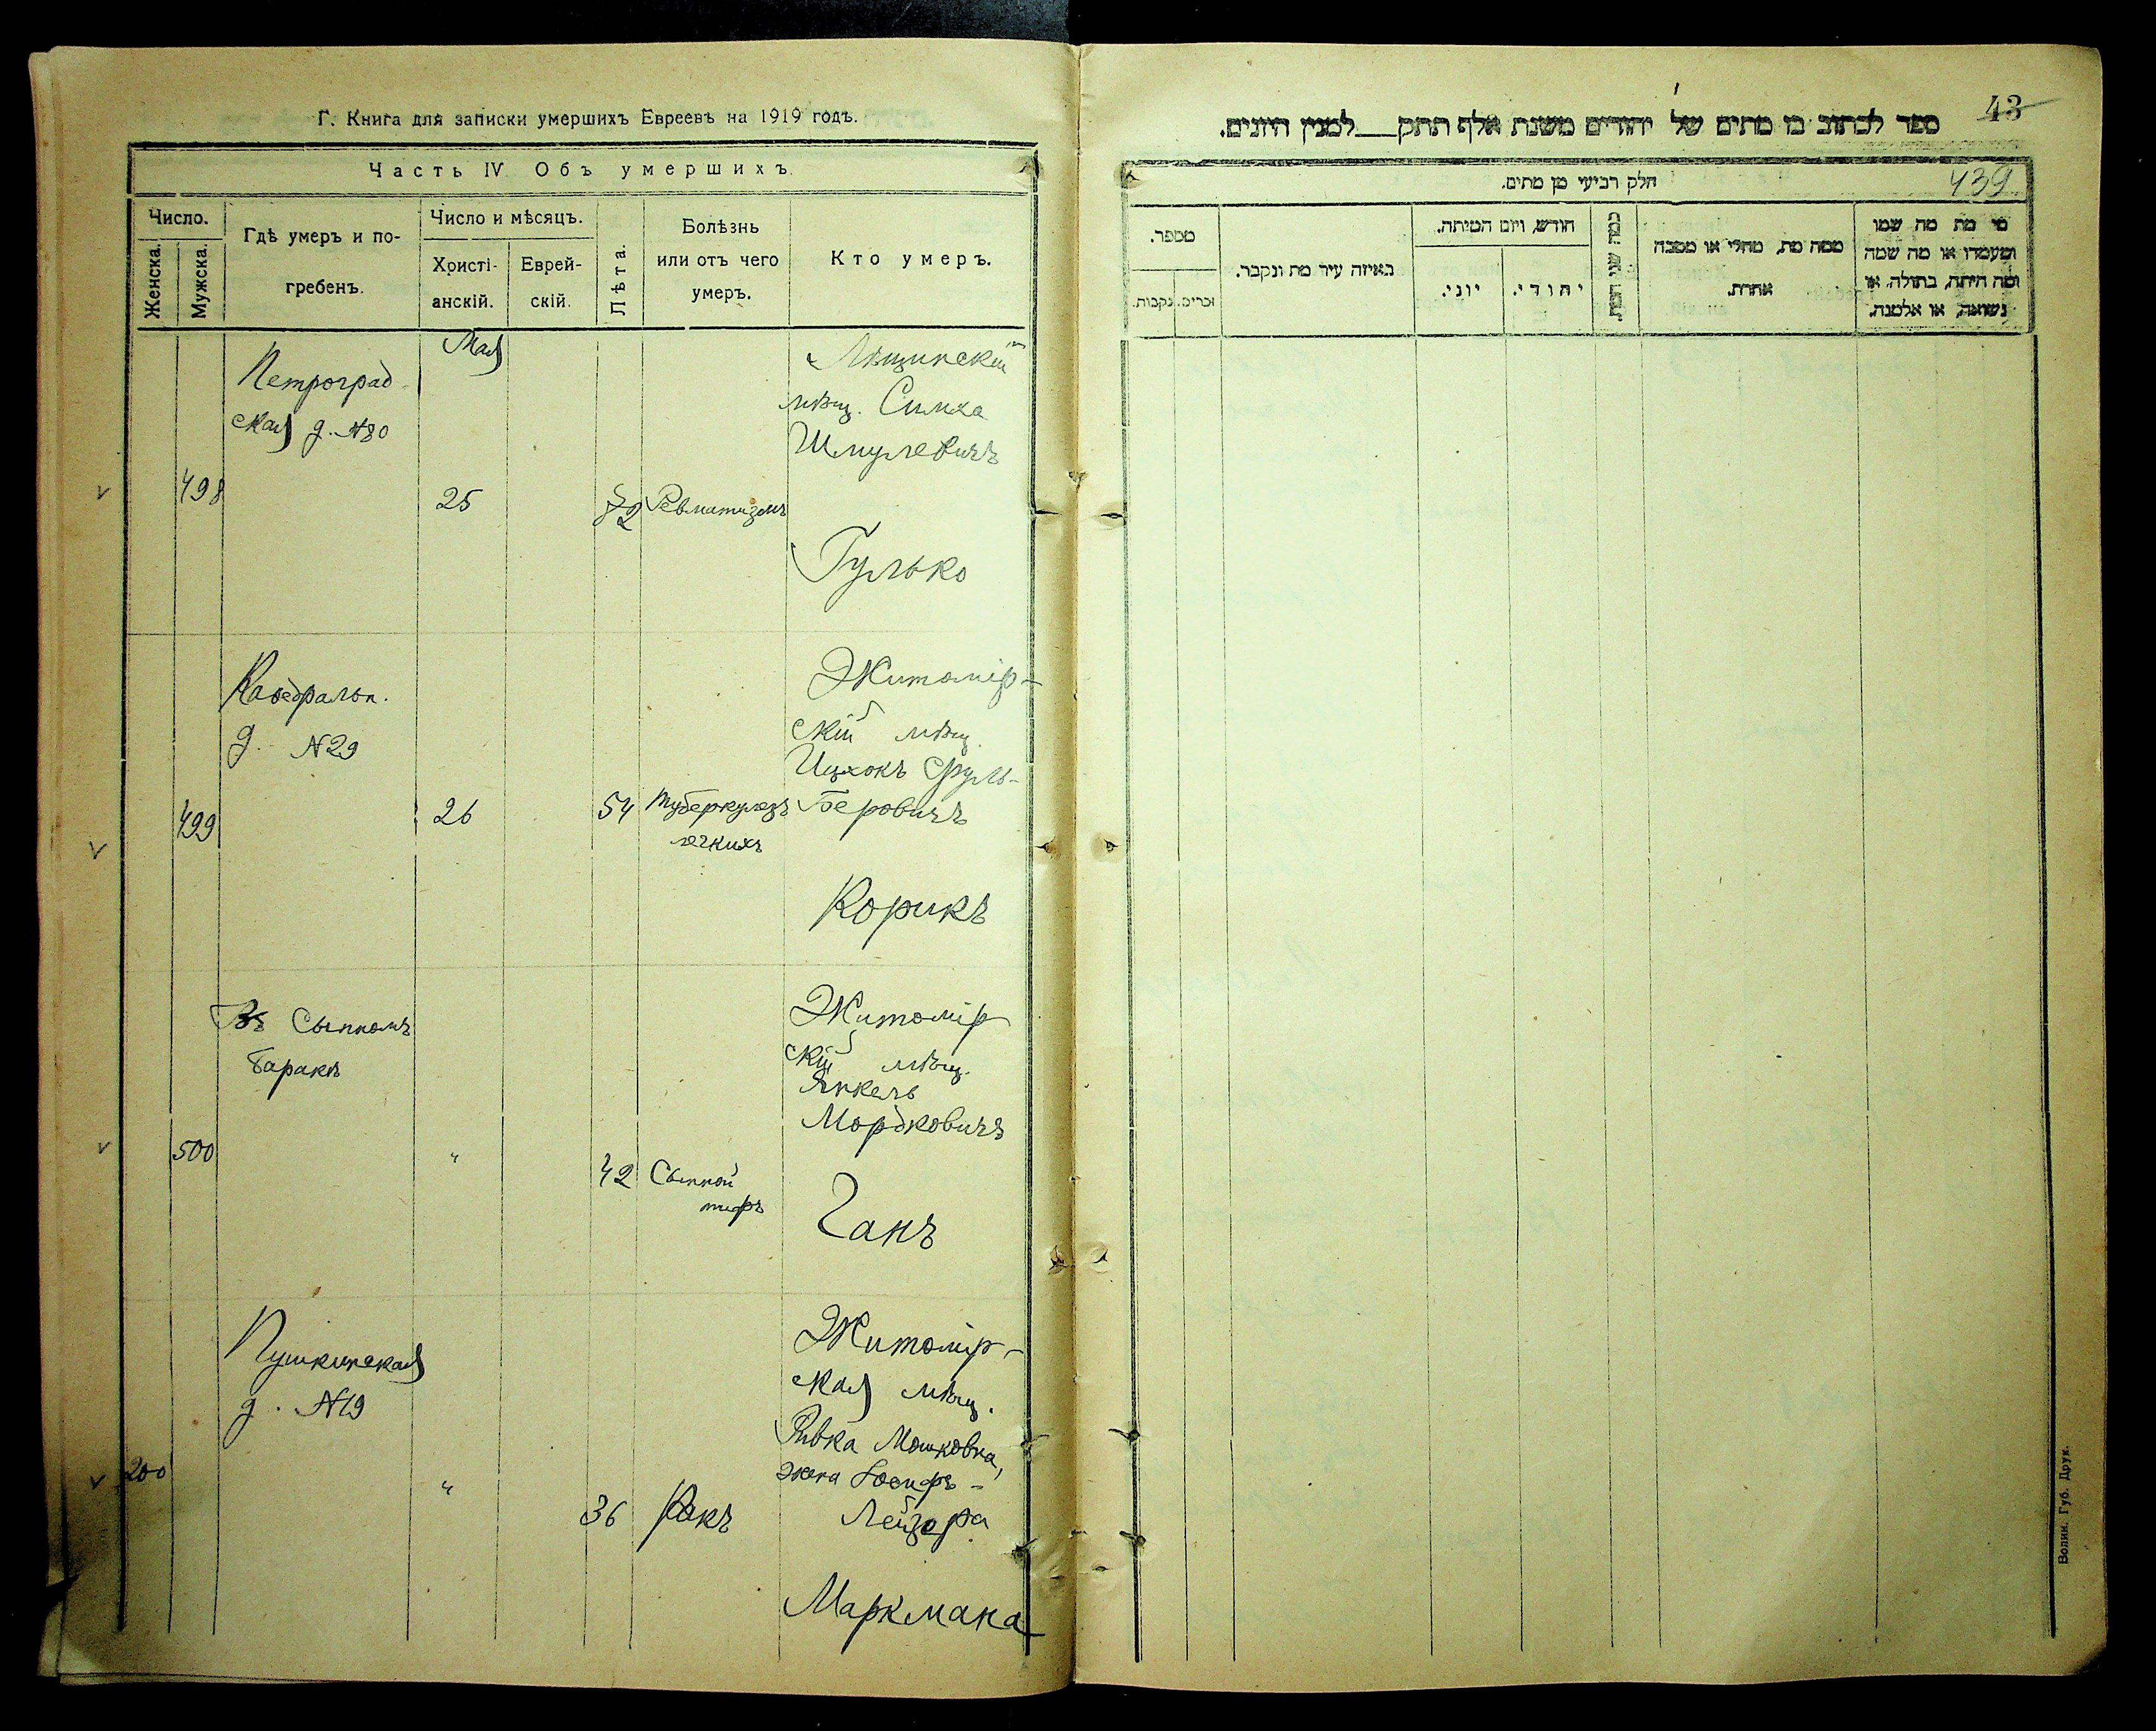 Г. Книга для записки умершихъ Евреевъ на 1919 годъ.
Часть IV Объ умершихъ.
Число.
Женска.
Мужска.
Гдѣ умеръ и по-
гребенъ.
Число и мѣсяцъ.
Христі-
анскій.
Еврей-
скій.
Лѣта.
Болѣзнь
или отъ чего
умеръ.
Кто умеръ.
Мая
Петроград-
ская д. №80
498
25
Ревматизмъ
мѣщ. Симха
Шмулевичъ
Гулько
Каѳедральн.
д. №29
499
26
54
Туберкулезъ
легкихъ
Житомір-
скій мѣщ.
Ицхокъ Сруль-
Беровичъ
Корикъ
Въ Сыпномъ
баракѣ
500
"
42
Сыпной
тифъ
Житомір
скій мѣщ.
Янкель
Мордковичъ
Ганъ
Пушкинская
д. №19
200
"
36
Ракъ
Житомір-
ская мѣщ.
Ривка Мошковна,
жена Іосифъ-
Лейзера
Маркмана
43
ספר לכתוב בו מתים של יהודים משנת אלף תתק__למנין היונים.
439
חלק רביעי מן מתים.
מספר.
נקבות.
זכרים.
באיזה עיר מת ונקבר.
חודש ויום המיתה.
יוני.
יהודי.
ממה מת, מחלי או מסבה
אחרת.
מי מת מה שמו
ומעמדו או מה שמה
ומה היתה, בתולה או
נשואה, או אלמנה.
Волин. Губ. Друк.